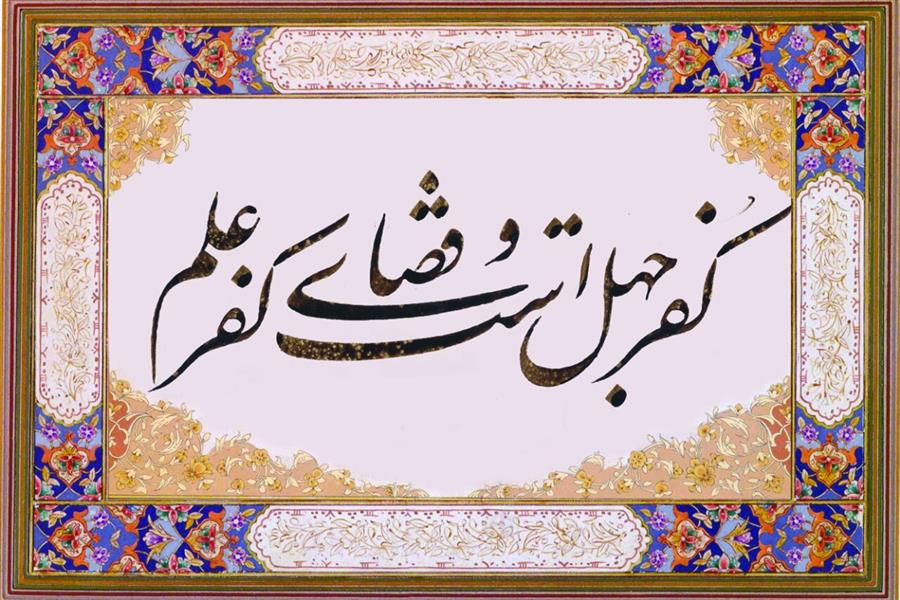 کُفر جهل است و قضای کفر علم